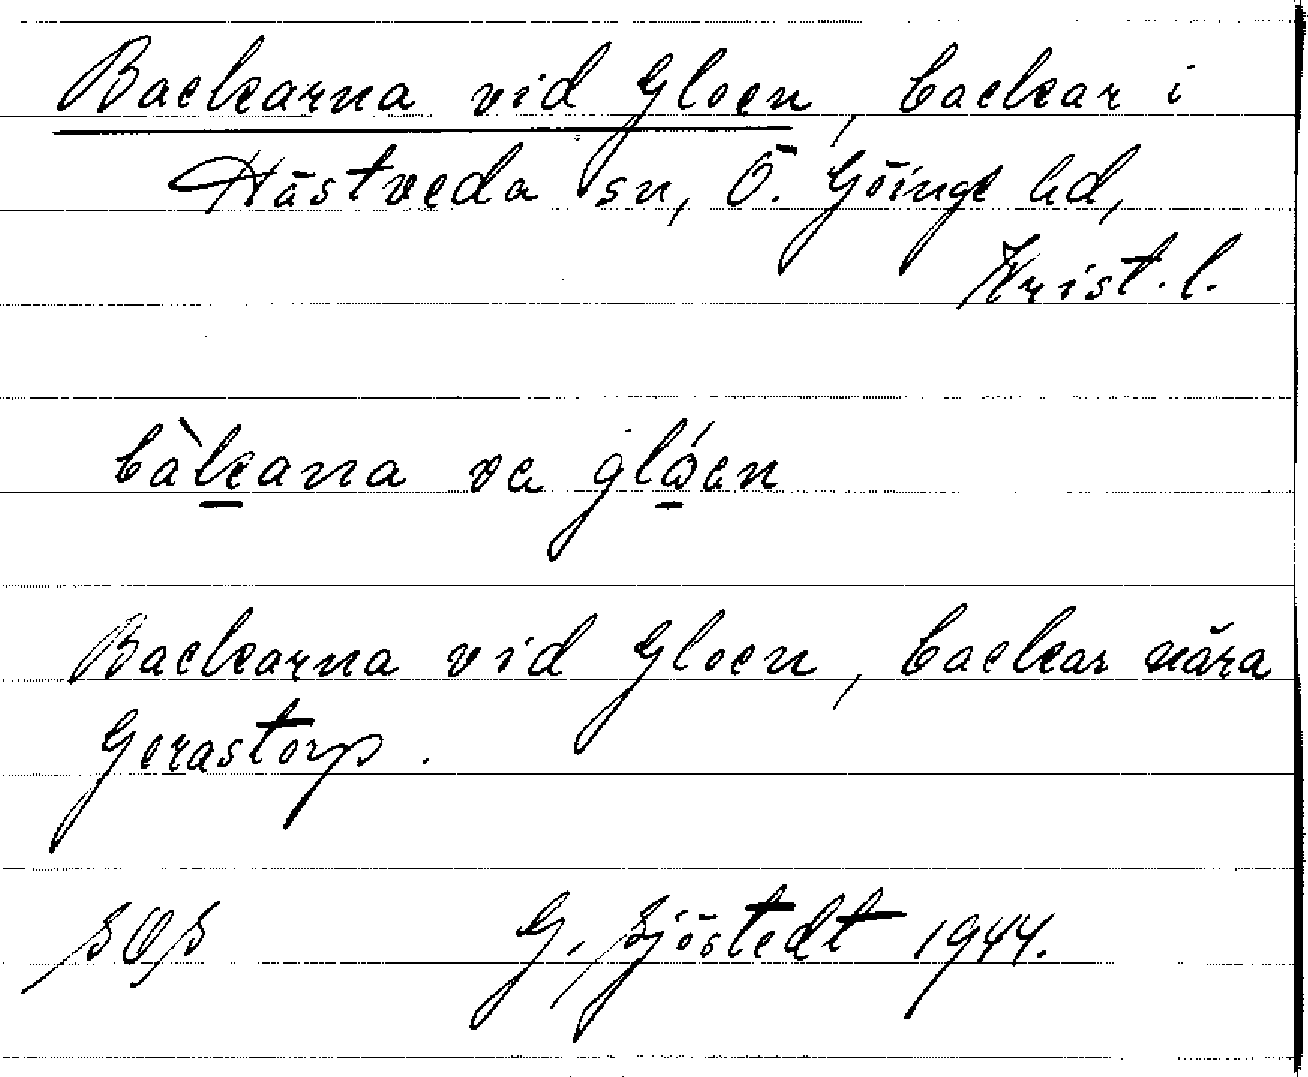 Backarna vid Gloen, backar i
Hästveda sn, Ö. Göinge hd,
Krist. l.
bàkana ve glóen
Backarna vid Gloen, backar nära
Gerastorp.
G. Sjöstedt 1944.